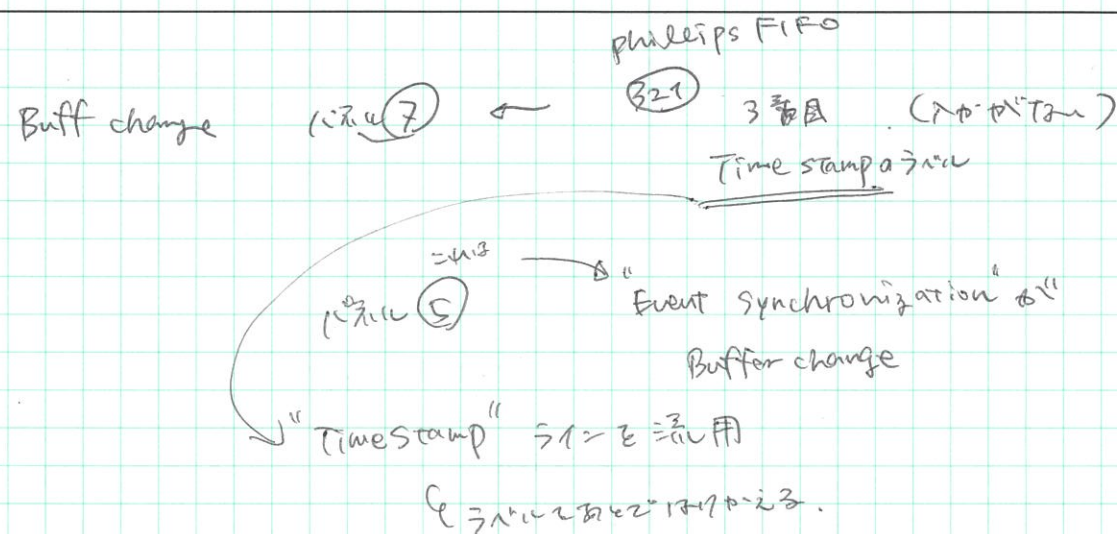 phillips FIFO
Buff change パネル⑦ ← 321 3番目 (入力がない)
Time stampのラベル
これは
パネル⑤ "Event synchronization"が
Buffer change
"TimeStamp" ラインを流用
ラベルをあとではりかえる.